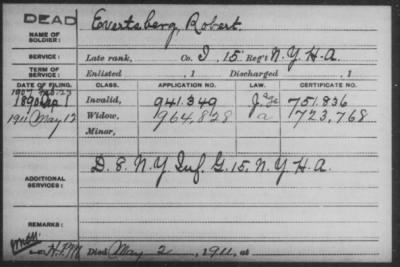 DEAD
Evertsberg, Robert.
NAME OF SOLDIER:
SERVICE: Late rank, Co. I, 15. Reg't N.Y.H.A.
TERM OF SERVICE: Enlisted , 1 Discharged , 1
DATE OF FILING. CLASS. APPLICATION NO. LAW. CERTIFICATE NO.
1907 Feb. 23
1890 1 Invalid, 941.349 751.836
1911 May 12 Widow, 964,828 a 723,768
Minor,
ADDITIONAL SERVICES: D. 8. N.Y. Inf. G. 15. N.Y.H.A.
REMARKS:
Died May 2, 1911, at